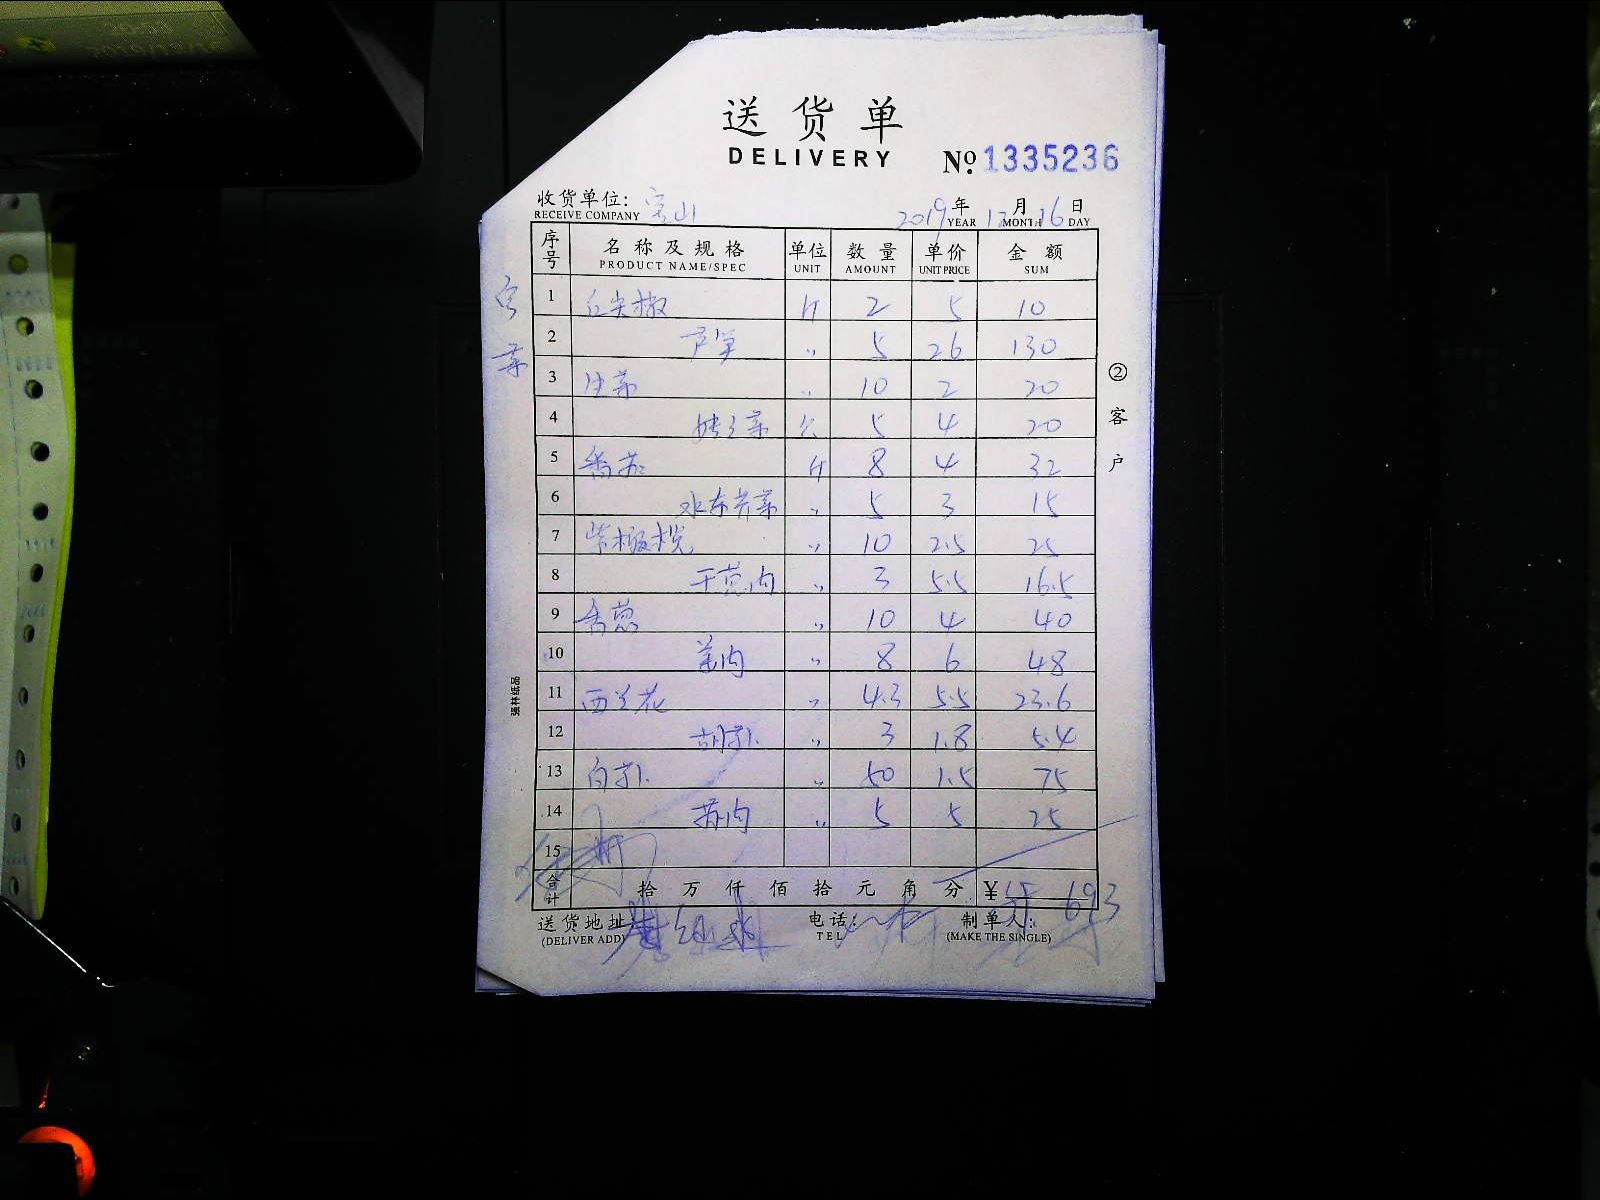 送货单
DELIVERY
№ 1335236
收货单位: 宝山 2019年 12月 16日
RECEIVE COMPANY YEAR MONTH DAY
序号 名称及规格 单位 数量 单价 金额
PRODUCT NAME/SPEC UNIT AMOUNT UNIT PRICE SUM
1 红尖椒 斤 2 5 10
2 芦笋 〃 5 26 130
3 生菜 〃 10 2 20
4 娃娃菜 5 4 20
5 斤 8 4 32
6 水东芥菜 〃 5 3 15
7 〃 10 2.5 25
8 干葱肉 〃 3 5.5 16.5
9 香葱 〃 10 4 40
10 姜肉 〃 8 6 48
11 西兰花 〃 4.3 5.5 23.6
12 〃 3 1.8 5.4
13 〃 50 1.5 75
14 蒜肉 〃 5 5 25
15
合计 拾 万 仟 佰 拾 元 角 分 ¥
送货地址: 电话: 制单人:
(DELIVER ADD) TEL (MAKE THE SINGLE)
②客户
强林纸品